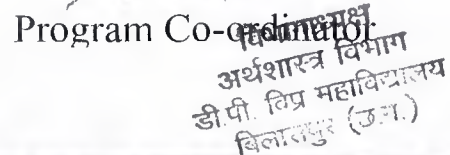 Program Co-ordinator
विभागाध्यक्ष
अर्थशास्त्र विभाग
डी.पी. विप्र महाविद्यालय
बिलासपुर (छ.ग.)